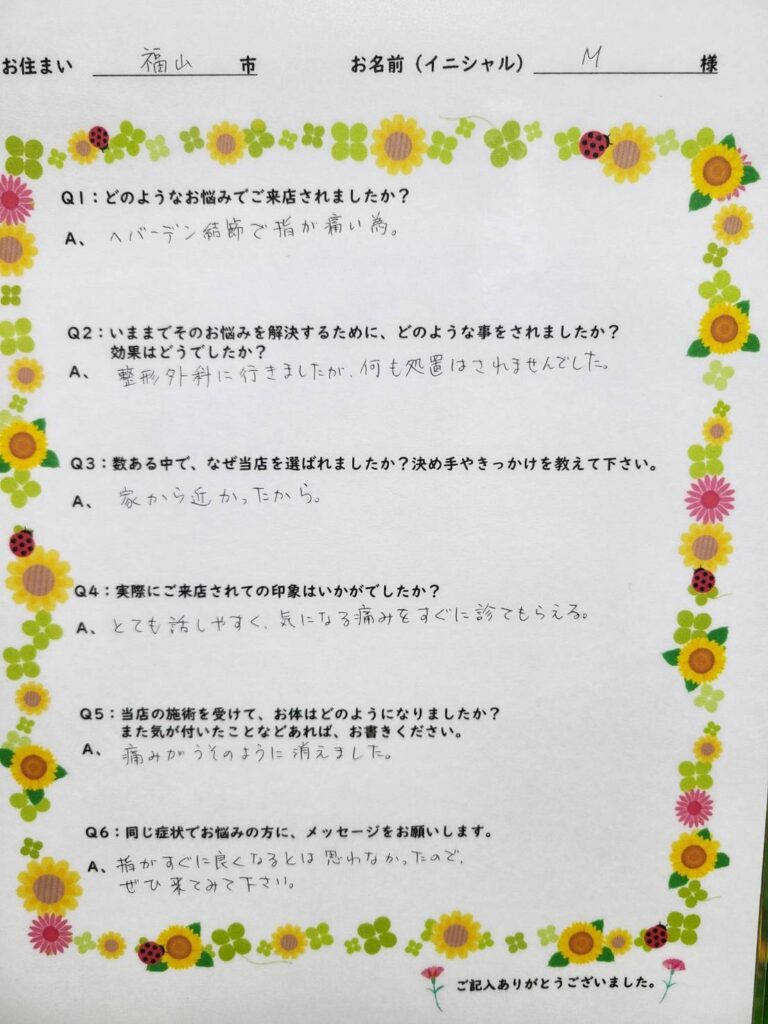 お住まい 福山 市 お名前（イニシャル） M 様
Q1：どのようなお悩みでご来店されましたか？
A、 ヘバーデン結節で指が痛い為。
Q2：いままでそのお悩みを解決するために、どのような事をされましたか？
効果はどうでしたか？
A、 整形外科に行きましたが、何も処置はされませんでした。
Q3：数ある中で、なぜ当店を選ばれましたか？決め手やきっかけを教えて下さい。
A、 家から近かったから。
Q4：実際にご来店されての印象はいかがでしたか？
A、 とても話しやすく、気になる痛みをすぐに診てもらえる。
Q5：当店の施術を受けて、お体はどのようになりましたか？
また気が付いたことなどあれば、お書きください。
A、 痛みがうそのように消えました。
Q6：同じ症状でお悩みの方に、メッセージをお願いします。
A、 指がすぐに良くなるとは思わなかったので、
ぜひ来てみて下さい。
ご記入ありがとうございました。